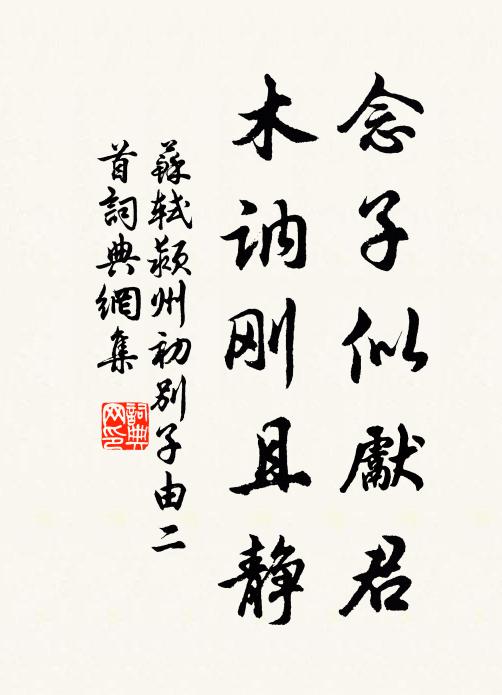 念子似獻君
木讷刚且静
蘇軾潁州初別子由二
首詞典網集
詞典网印